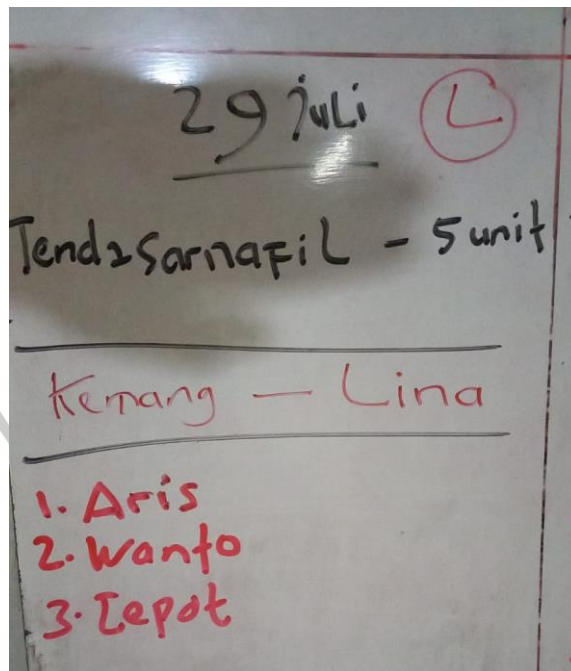 29 juli L
Tenda Sarnafil - 5 unit
Kemang - Lina
1. Aris
2. Wanto
3. Iepot